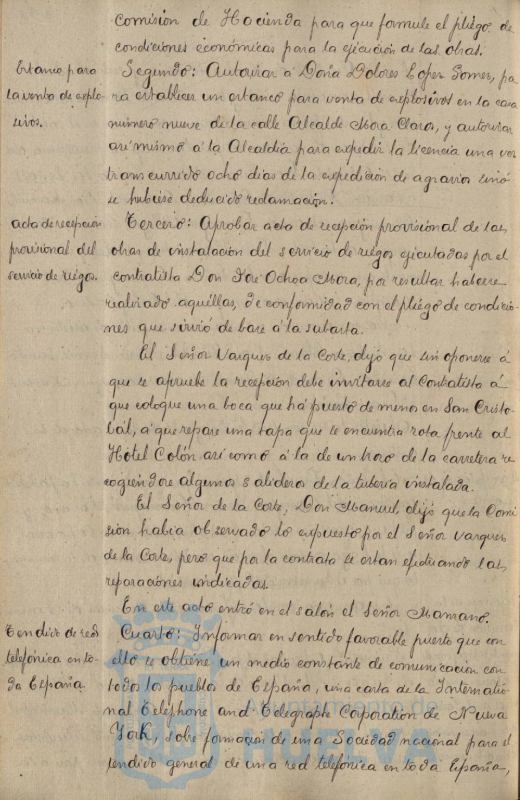 Comisión de Hacienda para que formule el pliego de
condiciones económicas para la ejecución de las obras.
Estanco para
la venta de explo-
sivos.
Segundo: Autorizar á Doña Dolores Lopez Gomez, pa
ra establecer un estanco para venta de explosivos en la casa
número nueve de la calle Alcalde Mora Claros, y autorizar
asi mismo á la Alcaldia para expedir la licencia una vez
transcurrido ocho dias de la expedición de agravios sinó
se hubiese deducido reclamación.
acta de recepción
provisional del
servicio de riegos.
Tercero: Aprobar acta de recepción provisional de las
obras de instalación del servicio de riegos ejecutadas por el
contratista Don José Ochoa Mora, por resultar haberse
realizado aquellas, de conformidad con el pliego de condicio-
nes que sirvió de base á la subasta.
El Señor Vazquez de la Corte, dijo que sin oponerse á
que se apruebe la recepción debe invitarse al Contratista á
que coloque una boca que há puesto de menos en San Cristo-
bál, á que repare una tapa que se encuentra rota frente al
Hôtel Colón asi como á la de un trozo de la carretera re
cogiendose algunos salideros de la tubería instalada.
El Señor de la Corte, Don Manuel, dijo que la Comi
sion habia observado lo expuesto por el Señor Vazquez
de la Corte, pero que por la contrata se estan efectuando las
reparaciones indicadas.
En este acto entró en el salón el Señor Manzano.
Tendido de red
telefónica en to-
da España
Cuarto: Informar en sentido favorable puesto que con
ello se obtiene un medio constante de comunicación con
todos los pueblos de España, una carta de la Internatio
nal Teléphone and Telegraphe Corporation de Nueva
York, sobre formación de una Sociedad nacional para el
tendido general de una red telefónica en toda España,